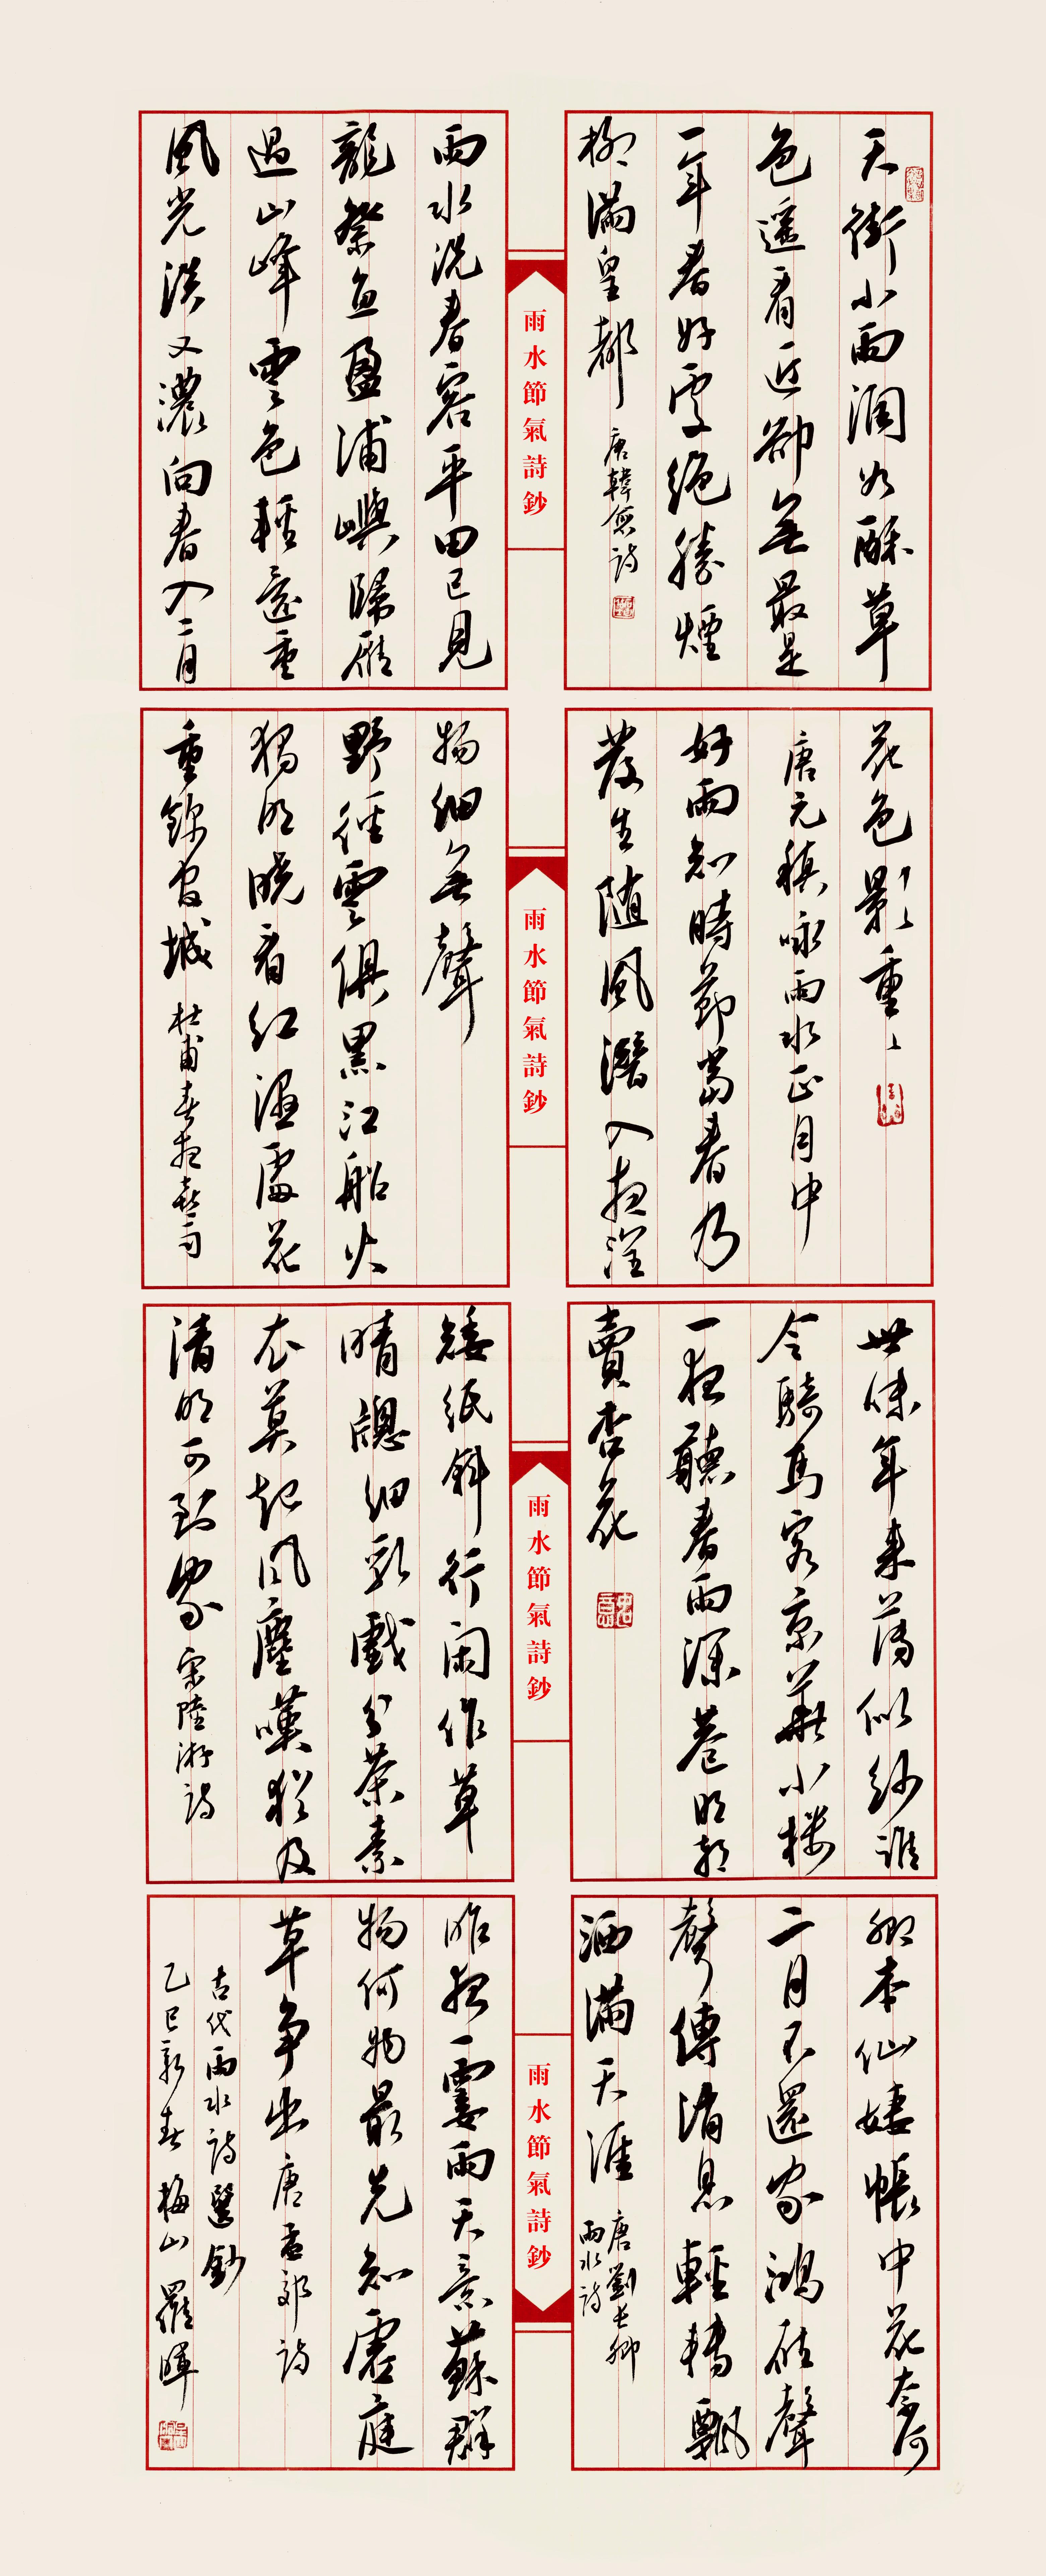 天街小雨潤如酥草
色遥看近卻無最是
一年春好處絕勝煙
柳滿皇都
唐韓愈詩
雨水節氣詩鈔
雨水洗春容平田已見
龍祭魚盈浦嶼歸雁
過山峰雲色輕還重
風光淡又濃向春入二月
花色影〻重〻
唐元稹咏雨水正月中
好雨知時節當春乃
發生随風潛入夜潤
雨水節氣詩鈔
物細無聲
野徑雲俱黑江船火
獨明曉看紅濕處花
重錦官城
杜甫春夜喜雨
世味年來薄似紗誰
令騎馬客京華小樓
一夜聽春雨深巷明朝
賣杏花
雨水節氣詩鈔
矮紙斜行閑作草
晴窗細乳戲分茶素
衣莫起風塵嘆猶及
清明可到家
宋陸游詩
卿本仙
帳中花奈何
二月不還家鴻雁聲
聲傳消息輕轉飄
洒滿天涯
唐劉長卿
雨水詩
雨水節氣詩鈔
昨夜一霎雨天意蘇群
物何物最先知虛庭
草争出
唐孟郊詩
古代雨水詩選鈔
乙巳新春梅山羅暉